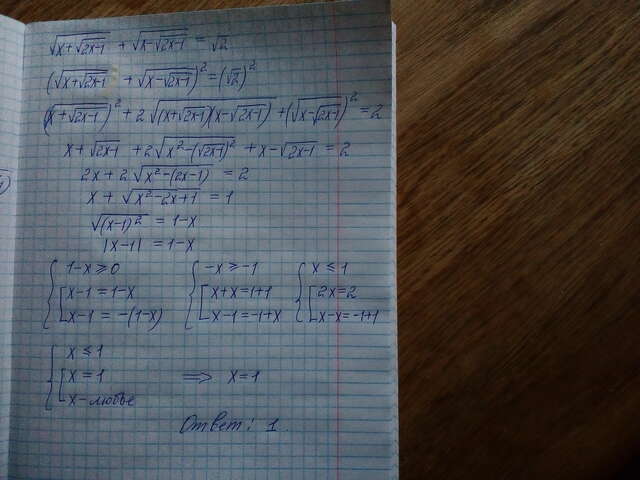 √(x+√(2x-1)) + √(x-√(2x-1)) = √2
(√(x+√(2x-1)) + √(x-√(2x-1)))² = (√2)²
(√(x+√(2x-1)))² + 2√((x+√(2x-1))(x-√(2x-1))) + (√(x-√(2x-1)))² = 2
x+√(2x-1) + 2√(x²-(√(2x-1))²) + x-√(2x-1) = 2
2x + 2√(x²-(2x-1)) = 2
x + √(x²-2x+1) = 1
√((x-1)²) = 1-x
|x-1| = 1-x
{ 1-x ≥ 0 { -x ≥ -1 { x ≤ 1
[ x-1 = 1-x [ x+x = 1+1 [ 2x = 2
x-1 = -(1-x) x-1 = -1+x x-x = -1+1
{ x ≤ 1
[ x = 1 ⟹ x = 1
x - любые
Ответ: 1.